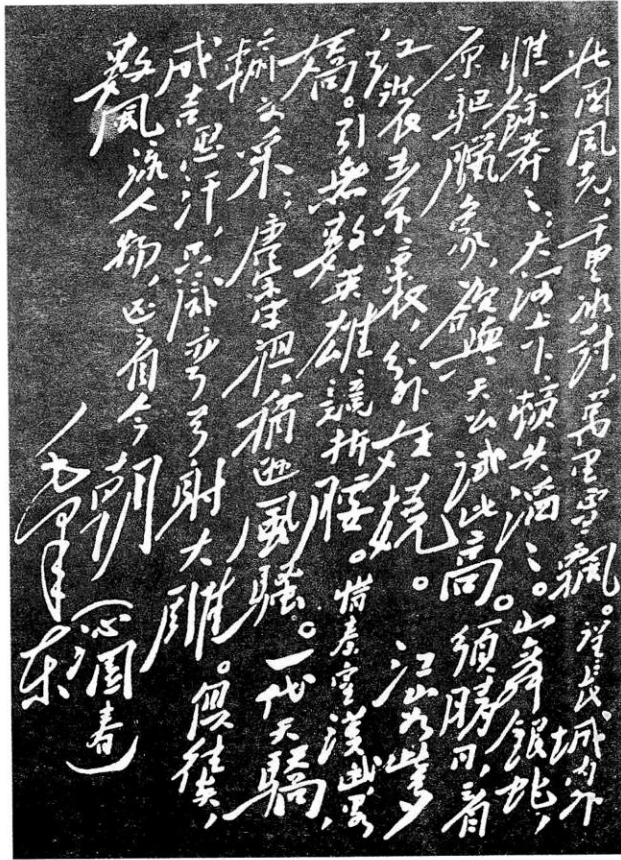 北國風光,千里冰封,萬里雪飄。望長城內外
惟餘莽〻;大河上下,頓失滔〻。山舞銀蛇,
原驅臘象,欲與天公試比高。須晴日,看
紅裝素裹,分外妖嬈。江山如此多
嬌。引無數英雄競折腰。惜秦皇漢武,略
輸文采;唐宗宋祖,稍遜風騷。一代天驕,
成吉思汗,只識彎弓射大雕。俱往矣,
數風流人物,还看今朝(沁園春)
毛澤东